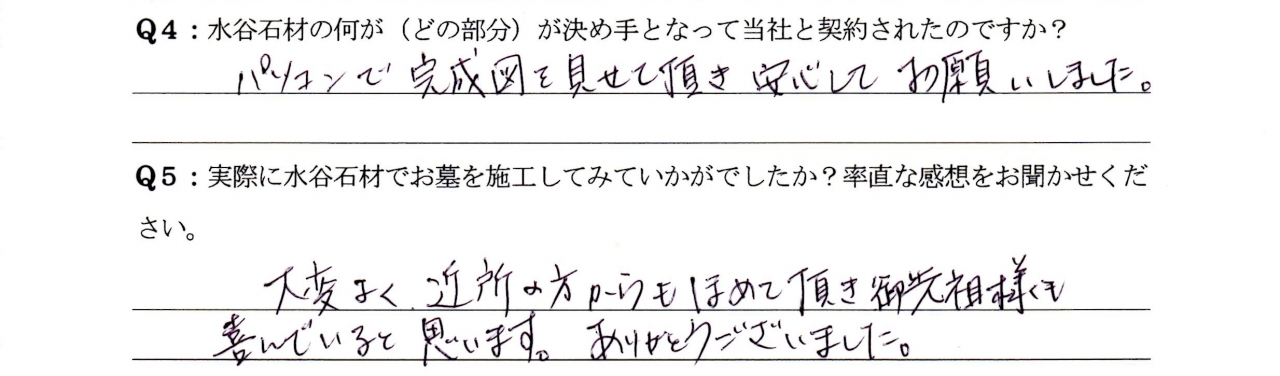 Q4：水谷石材の何が（どの部分）が決め手となって当社と契約されたのですか？
パソコンで完成図を見せて頂き安心してお願いしました。
Q5：実際に水谷石材でお墓を施工してみていかがでしたか？率直な感想をお聞かせくだ
さい。
大変よく、近所の方からもほめて頂き御先祖様も
喜んでいると思います。ありがとうございました。